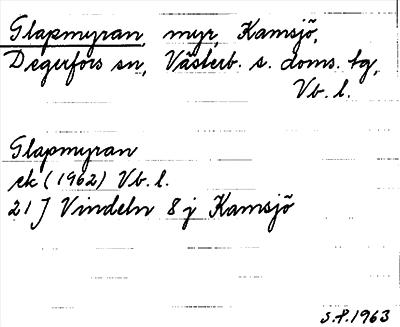 Glapmyran, myr, Kamsjö,
Degerfors sn, Västerb. s. doms. tg,
Vb. l.
Glapmyran
ek (1962) Vb. l.
21 J Vindeln 8 j Kamsjö
S.P. 1963